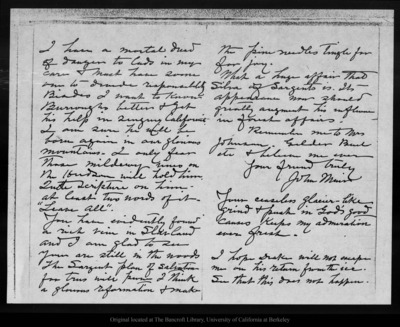 I have a mortal dread
of danger to lads in my
care & must have some
one to divide responsibility
Besides I want to know
Burroughs better & get
his help in singing California
I am sure he will be
born again in our glorious
mountains. I only fear
those mildewy vines on
the Hudson will hold him.
Quote Scripture on him.
at least two words of it
"Leave All".
You have evidently found
a rich vein in Elkisland
and I am glad to see
you are still in the woods
The Sargent plan of salvation
for trees will prove I think
a glorious reformation & make
the pine needles tingle for
for joy.
What a huge affair that
Silva of Sargents is. Its
appearance now should
greatly augment his influence
in forest affairs.
Remember me to Mrs
Johnson, Gilder Buel
etc & believe me ever
Your friend truly
John Muir
Your ceaseless glacier-like
grind & push in God's good
causes keeps my admiration
ever fresh.
I hope will not escape
me on his return from the ice
See that this does not happen.
Original located at The Bancroft Library, University of California at Berkeley